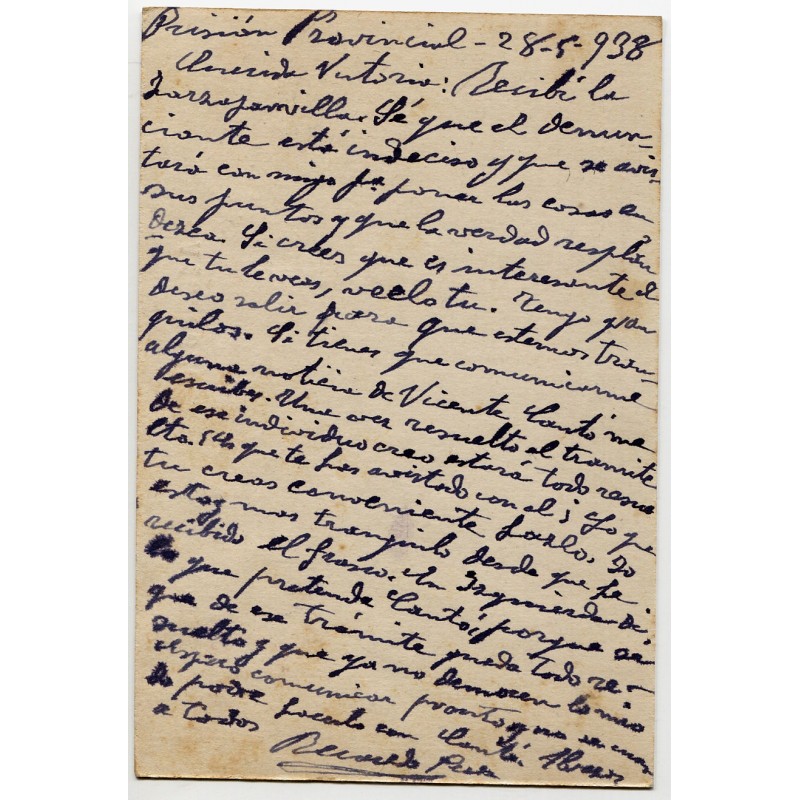 Prisión Provincial - 28-5-938
Querida Victoria: Recibí la
zarzaparrilla. Sé que el denun-
ciante está indeciso y que se avis-
tará con migo pa poner las cosas en
sus puntos y que la verdad resplan
dezca. Si crees que es interesante el
que tu le veas, veelo tu. Tengo gran
deseo salir para que estemos tran-
quilos. Si tienes que comunicarme
alguna noticia de Vicente Cantó me
escribes. Una vez resuelto el trámite
de ese individuo creo estará todo resue
lto. que te has avistado con el; Lo que
tu creas conveniente hazlo. Yo
estoy mas tranquilo desde que he
recibido el frasco. en Izquierda di,
lo que pretenda Cantó, porque se
que de ese trámite queda todo re-
suelto y que ya no demoren lo mio
espero comunicar pronto y no se cuan
do podré hacerlo con Cantó. Abrazos
a todos